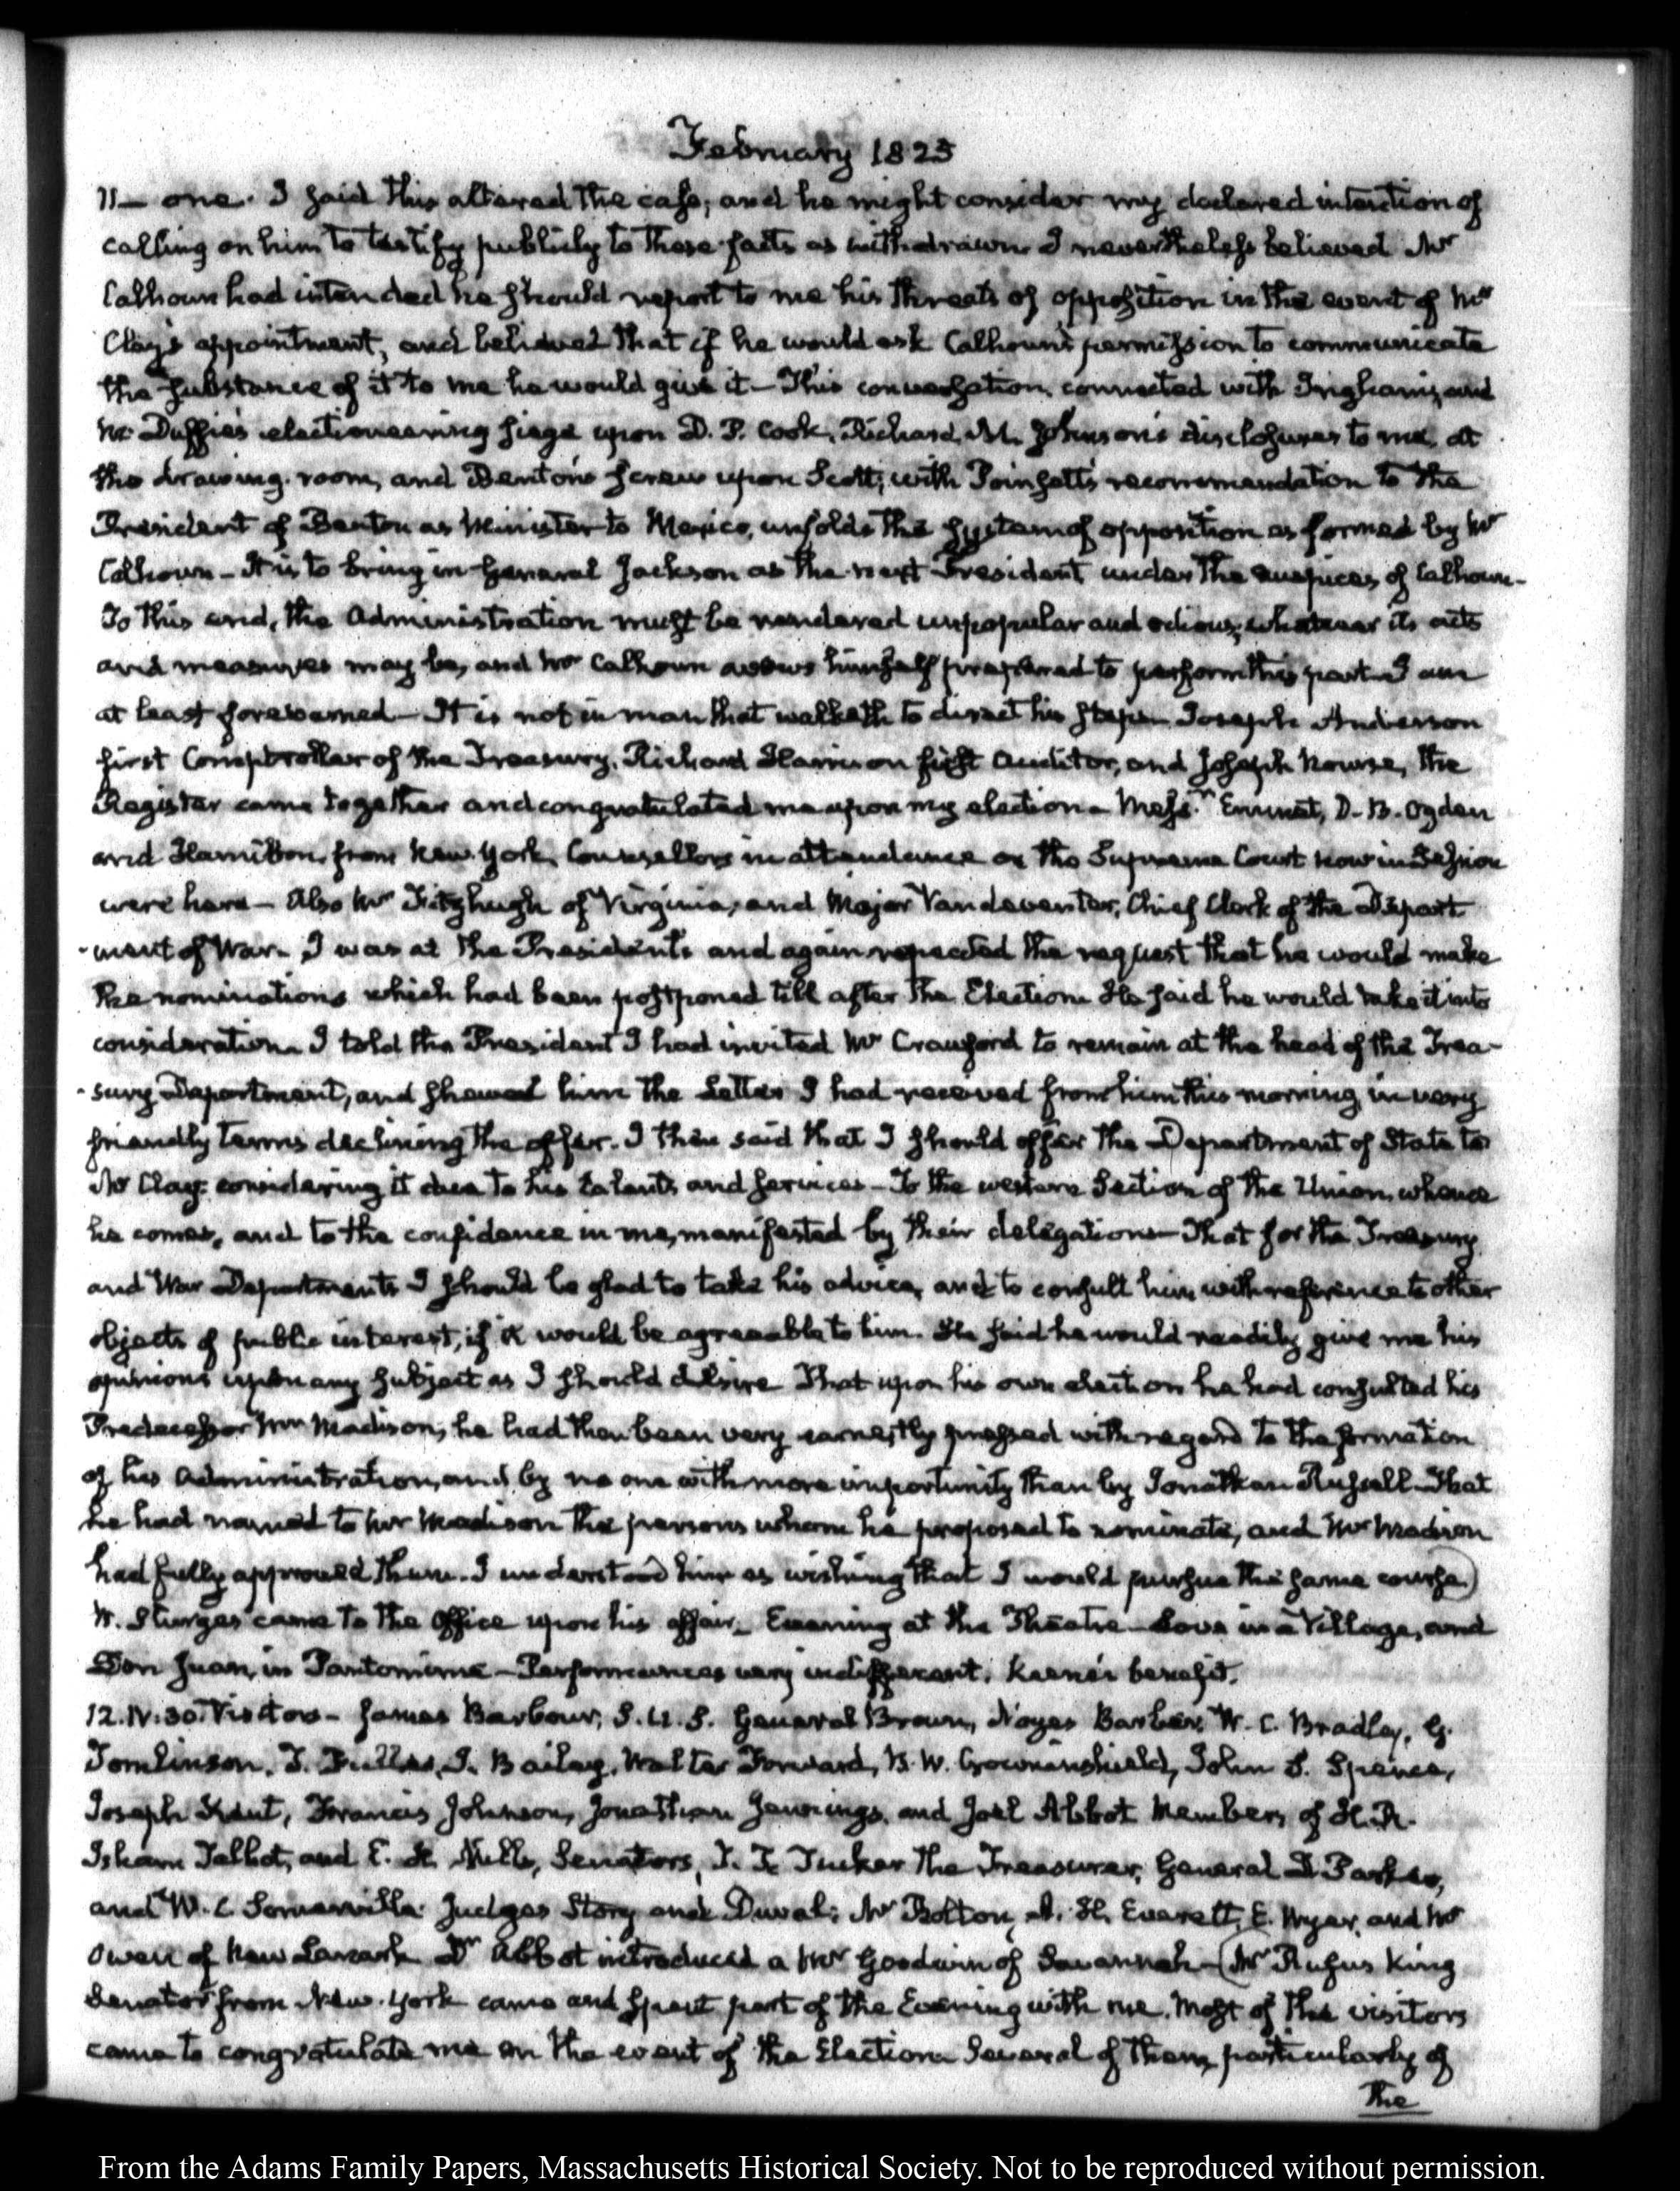 February 1825
11— one. I said this altered the case, and he might consider my declared intention of
calling on him to testify publicly to these facts as withdrawn. I nevertheless believed Mr
Calhoun had intended he should report to me his threats of opposition in the event of Mr
Clay's appointment, and believed that if he would ask Calhoun's permission to communicate
the substance of it to me he would give it— This conversation connected with Ingham's, and
Mc Duffie's electioneering siege upon D. P. Cook, Richard M. Johnson's disclosures to me, at
the drawing-room, and Benton's screw upon Scott; with Poinsett's recommendation to the
President of Benton as Minister to Mexico, unfolds the system of opposition as formed by Mr
Calhoun— It is to bring in General Jackson as the next President under the auspices of Calhoun—
To this end, the Administration must be rendered unpopular and odious, whatever its acts
and measures may be, and Mr Calhoun avows himself prepared to perform this part— I am
at least forewarned— It is not in man that walketh to direct his steps— Joseph Anderson
first Comptroller of the Treasury, Richard Harrison first Auditor, and Joseph Nourse, the
Register came together and congratulated me upon my election— Messrs Emmet, D. B. Ogden
and Hamilton, from New-York, Counsellors in attendance on the Supreme Court now in Session
were here— Also Mr Fitzhugh of Virginia, and Major Vandeventer, Chief Clerk of the Depart-
-ment of War. I was at the President's and again repeated the request that he would make
the nominations which had been postponed till after the Election. He said he would take it into
consideration. I told the President I had invited Mr Crawford to remain at the head of the Trea-
-sury Department, and shewed him the Letter I had received from him this morning, in very
friendly terms declining the offer. I then said that I should offer the Department of State to
Mr Clay: considering it due to his talents and services— To the western Section of the Union, whence
he comes, and to the confidence in me, manifested by their delegations— That for the Treasury
and War Departments I should be glad to take his advice, and to consult him with reference to other
objects of public interest, if it would be agreeable to him. He said he would readily give me his
opinions upon any subject as I should desire— That upon his own election he had consulted his
Predecessor Mr Madison; he had then been very earnestly pressed with regard to the formation
of his Administration, and by no one with more importunity than by Jonathan Russell— That
he had named to Mr Madison the persons whom he proposed to nominate, and Mr Madison
had fully approved them. I understood him as wishing that I would pursue the same course.)
W. Sturges came to the Office upon his affair— Evening at the Theatre— Love in a Village, and
Don Juan, in Pantomime— Performances very indifferent. Keene's benefit.
12. IV:30. Visitors— James Barbour, S.U.S. General Brown, Noyes Barber, W. C. Bradley, G.
Tomlinson, T. Fuller, J. Bailey, Walter Forward, B. W. Crowninshield, John S. Spence,
Joseph Kent, Francis Johnson, Jonathan Jennings, and Joel Abbot Members of H.R.
Isham Talbot, and E. H. Mills, Senators, T. T. Tucker the Treasurer, General D. Parker,
and W. C. Somerville. Judges Story and Duval; Mr Bolton, A. H. Everett, E. Wyer, and Mr
Owen of New Lanark. Dr Abbot introduced a Mr Goodwin of Savannah— (Mr Rufus King
Senator from New-York came and spent part of the Evening with me. Most of the visitors
came to congratulate me on the event of the Election. Several of them, particularly of
The
From the Adams Family Papers, Massachusetts Historical Society. Not to be reproduced without permission.